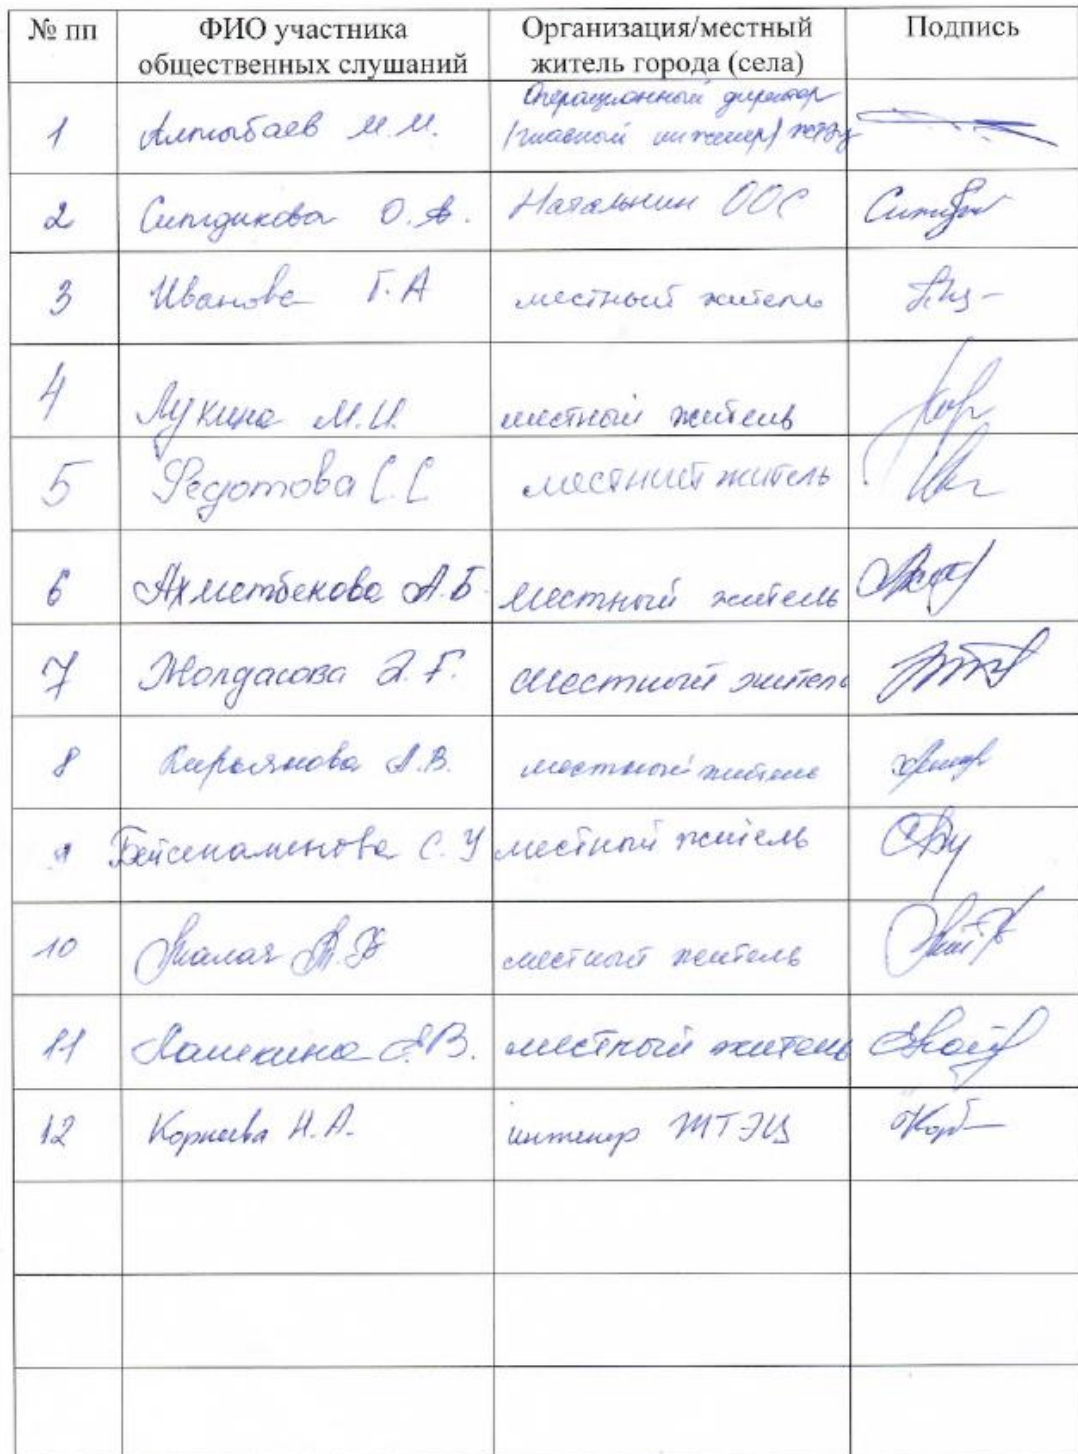 № пп
ФИО участника
общественных слушаний
Организация/местный
житель города (села)
Подпись
1
Алтыбаев М.М.
Операционный директор
(главный инженер)
2
Ситдикова О.А.
Начальник ООС
3
Иванова Г.А
местный житель
4
Лукина М.И.
местный житель
5
Федотова С.С
местний житель
6
Ахметбекова А.Б.
местный житель
7
Жолдасова З.Г.
местный житель
8
Кирьянова А.В.
местный житель
9
С.У
местный житель
10
местный житель
11
местный житель
12
Корнеева Н.А.
инженер ЖТЭЦ